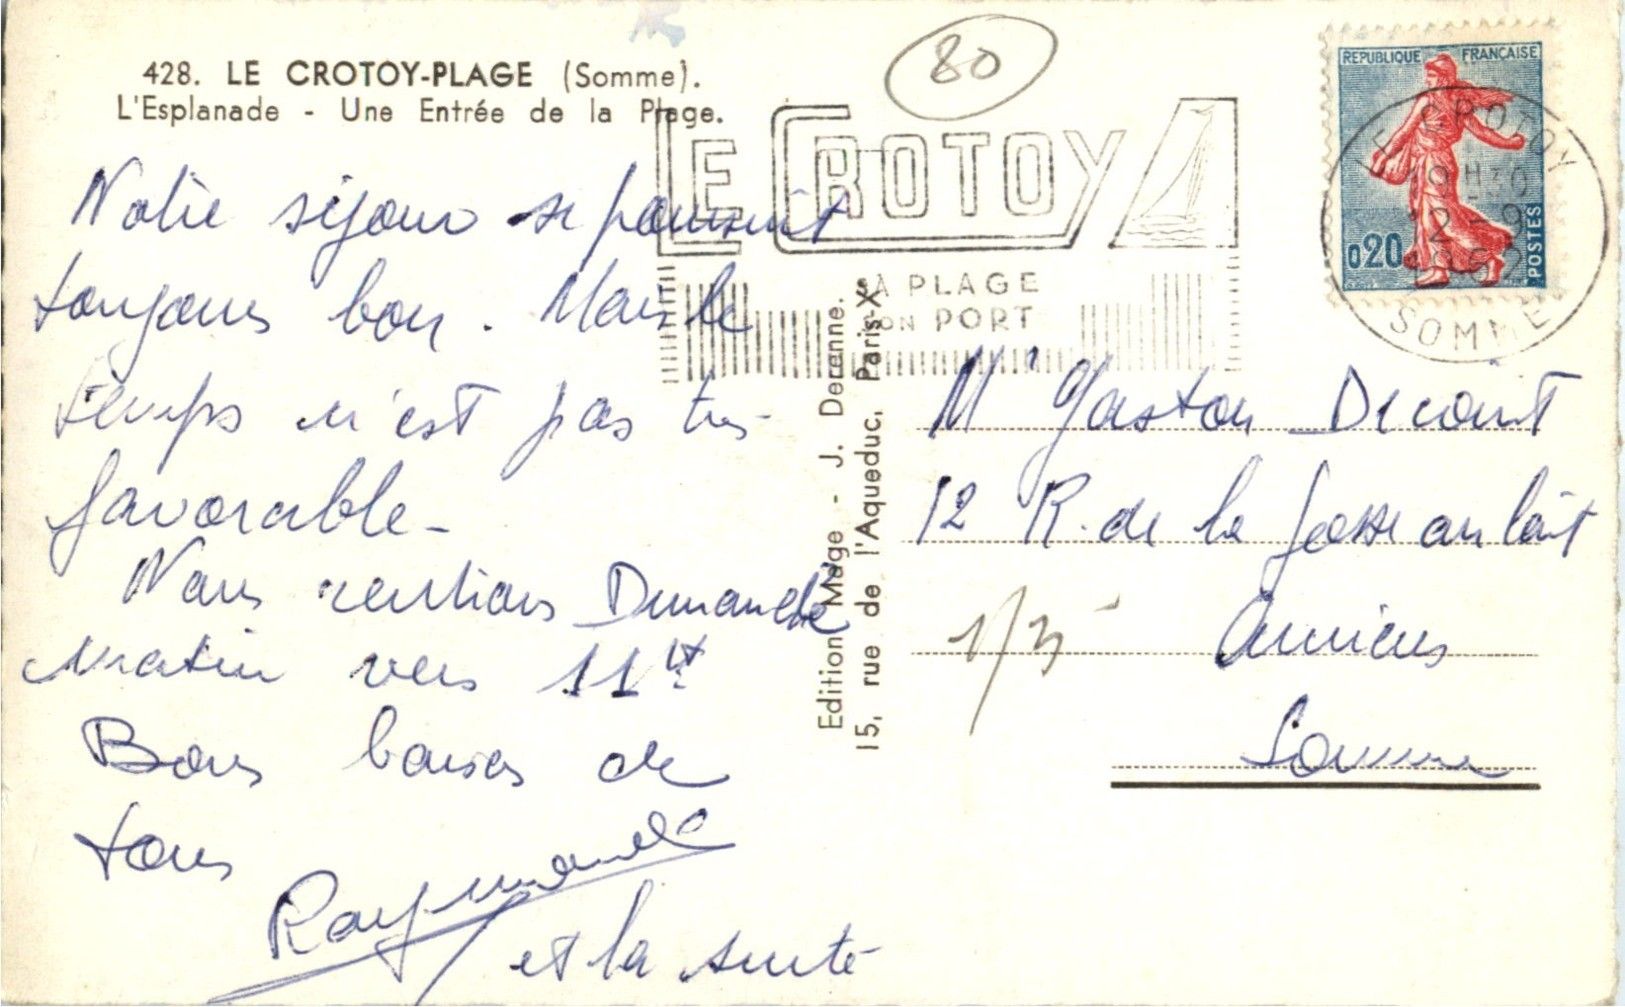 428. LE CROTOY-PLAGE (Somme).
L'Esplanade - Une Entrée de la Plage.
80
LE CROTOY
SA PLAGE
SON PORT
REPUBLIQUE FRANÇAISE
0,20
POSTES
LE CROTOY
19H30
12-9
1962
SOMME
Notre séjour se poursuit
toujours bon. Mais le
temps n'est pas très
favorable -
Nous rentrons Dimanche
matin vers 11H
Bons baisers de
tous
Raymonde
et la suite
Edition Mage - J. Deranne.
15, rue de l'Aqueduc, Paris-X
Mr Gaston Decoint
12 R. de la Fosse au lait
1/3
Amiens
Somme